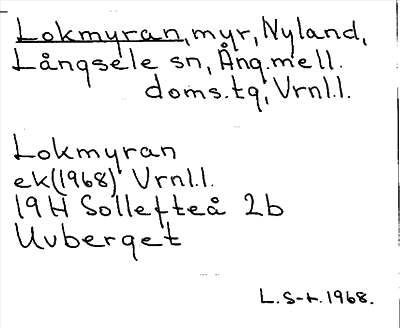 Lokmyran, myr, Nyland,
Långsele sn, Ång.mell.
doms.tg, Vrnl.l.
Lokmyran
ek(1968) Vrnl.l.
19H Sollefteå 2b
Uvberget
L. S-t. 1968.